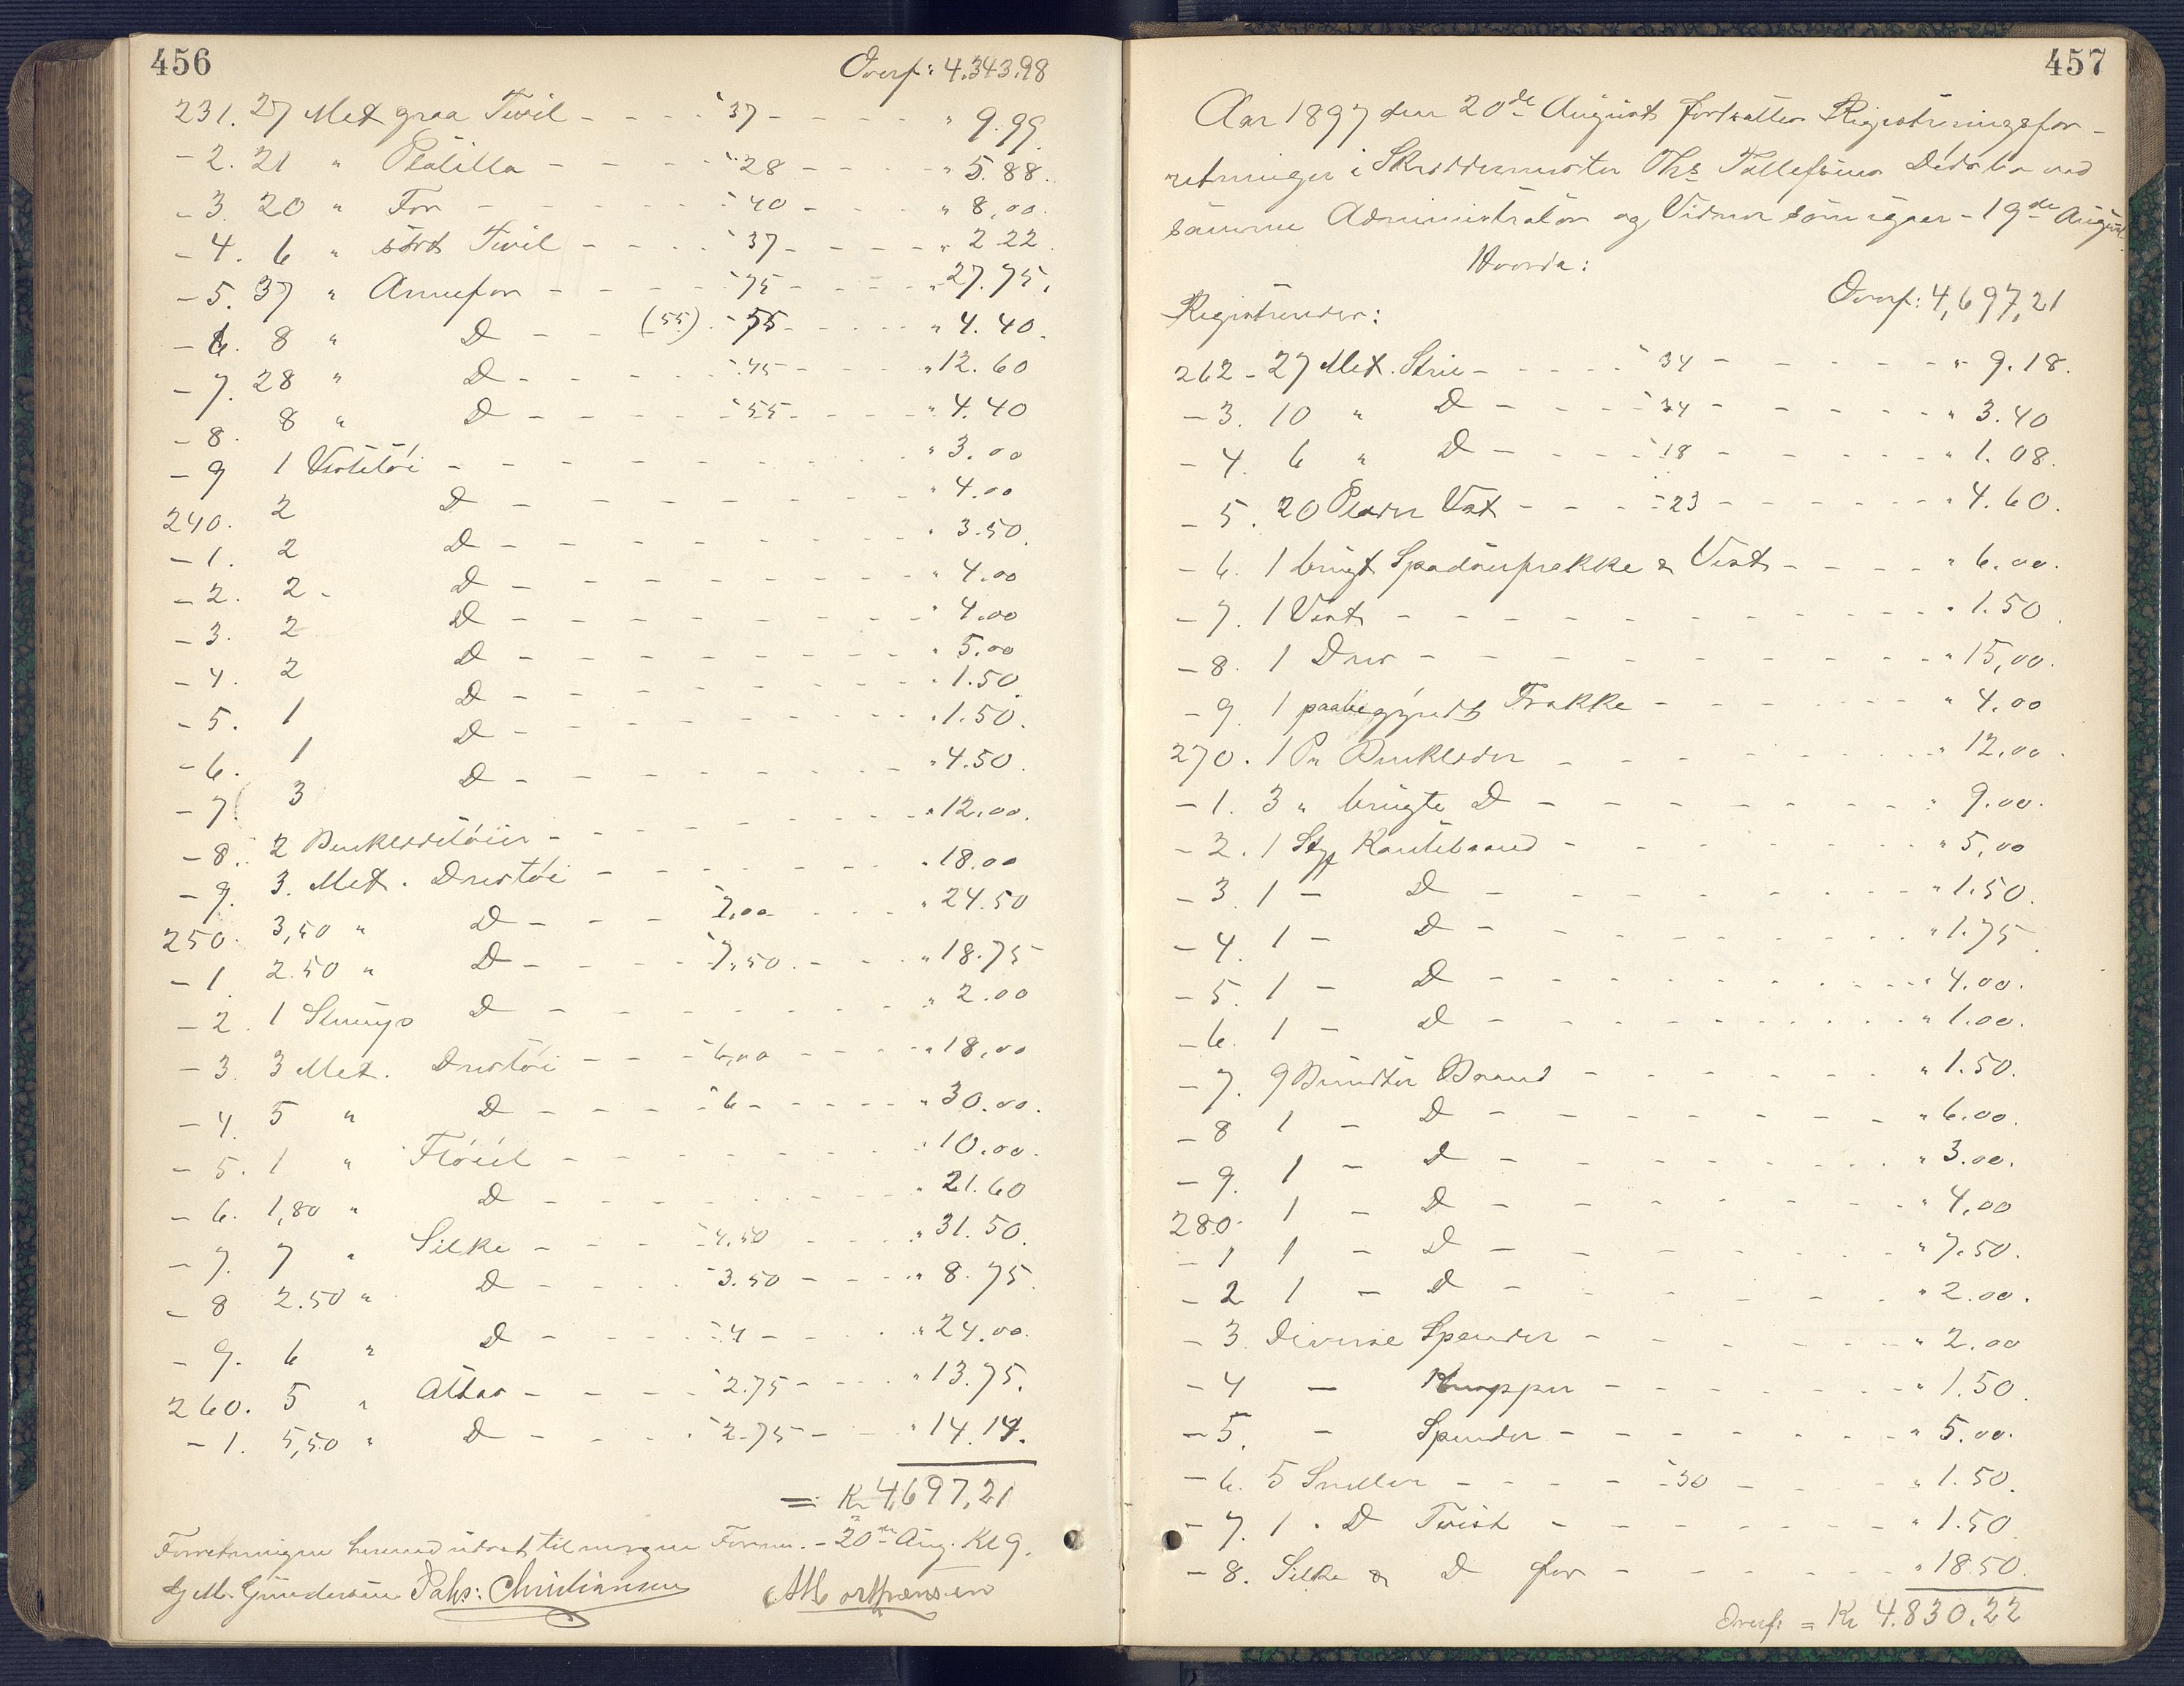 456
Overf: 4.343.98
231. 27 Met graa Tvil - - - - 37 - - - - " 9.99
- 2. 21 " Platilla - - - - 28 - - - - " 5.88.
- 3. 20 " For - - - - 40 - - - - " 8,00.
- 4. 6 " sort Tvil - - - - 37 - - - - " 2.22.
- 5. 37 " Armefor - - - - 75 - - - - " 27.75.
- 6. 8 " D - - (55) - 55 - - - - " 4.40.
- 7. 28 " D - - - - 45 - - - - " 12.60
- 8. 8 " D - - - - 55 - - - - " 4.40
- 9 1 Vestetøi - - - - " 3.00
240. 2 D - - - - " 4.00
- 1. 2 D - - - - " 3.50.
- 2. 2 - D - - - - " 4.00
- 3. 2 D - - - - " 4.00
- 4. 2 D - - - - " 5.00
- 5. 1 D - - - - " 1.50.
- 6. 1 D - - - - " 1.50.
- 7. 3 D - - - - " 4.50.
- 8. 2 Benklædetøier - - - - " 12.00.
- 9. 3. Met. Drestøi - - - - " 18.00
250. 3,50 " D - - - 7,00 - - - " 24.50
- 1. 2.50 " D - - - - 7,50. - - - " 18.75
- 2. 1 Stump D - - - - " 2.00
- 3. 3 Met. Drestøi - - - 6,00 - - - - " 18,00
- 4. 5 " D - - - - 6 - - - - " 30.00.
- 5. 1 " Fløiel - - - - " 10.00.
- 6. 1,80 " D - - - - " 21.60
- 7. 7 " Silke - - - - 4,50 - - - " 31.50.
- 8 2.50 " D - - - - 3.50 - - - " 8.75.
- 9. 6 " D - - - - 4 - - - " 24.00.
260. 5 " Atlas - - - - 2.75 - - - " 13.75.
- 1. 5,50 " D - - - - 2.75 - - " 14.14.
= Kr 4,697,21
Forretningen herved udsat til morgen Form. - 20de Aug. Kl 9.
M. Gundersen Pahs: Christiansen A Morthensen
457
Aar 1897 den 20de August fortsattes Registreringsfor-
retningen i Skræddermester Ths Tallefsens Dødsbo ved
samme Administrator og Vidner som igaar - 19de August
Hvorda:
Registreredes:
Overf: 4,697,21
262 - 27 Met. Strie - - - - 34 - - - - " 9.18.
- 3. 10 " D - - - - 34 - - - - " 3.40
- 4. 6 " D - - - - 18 - - - - " 1.08.
- 5. 20 Plader Vat - - - - 23 - - - - " 4.60.
- 6. 1 brugt Spadserfrakke & Vest - - - - " 6.00.
- 7. 1 Vest - - - - " 1.50.
- 8. 1 Dres - - - - " 15,00.
- 9. 1 paabegyndt Frakke - - - - " 4.00
270. 1 Pr Benklæder - - - - " 12.00.
- 1. 3 " brugte D - - - - " 9.00.
- 2. 1 Stp Kantebaand - - - - " 5,00
- 3. 1 - D - - - - " 1.50.
- 4. 1 - D - - - - " 1.75.
- 5. 1 - D - - - - " 4.00.
- 6. 1 - D - - - - " 1.00.
- 7. 9 Bundter Baand - - - - " 1.50.
- 8 1 - D - - - - " 6.00.
- 9. 1 - D - - - - " 3.00.
280. 1 - D - - - - " 4,00
- 1 1 - D - - - - " 7.50.
- 2 1 - D - - - - " 2.00.
- 3 Diverse Spænder - - - - " 2.00
- 4 - Knapper - - - - " 1.50.
- 5. - Spænder - - - - " 5.00.
- 6. 5 Sneller - - - - 30 - - - " 1.50.
- 7. 1 " D Tvist - - - - " 1.50.
- 8. Silke & D for - - - - " 18.50.
Overf = Kr 4.830.22